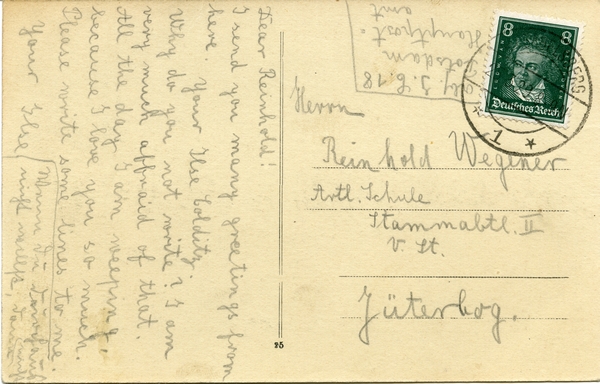 Dear Reinhold!
I send you many greetings from
here. Your Ilse Colditz.
Why do you not write? I am
very much affraid of that.
All the day I am weeping,
because I love you so much.
Please write some lines to me.
Your Ilse
Wenn Du
nicht
8 8
Deutsches Reich
1
Potsdam
Hauptpost=
amt
Herrn
Reinhold Wegener
Artl. Schule
Stammabtl. II
V. St.
Jüterbog.
25